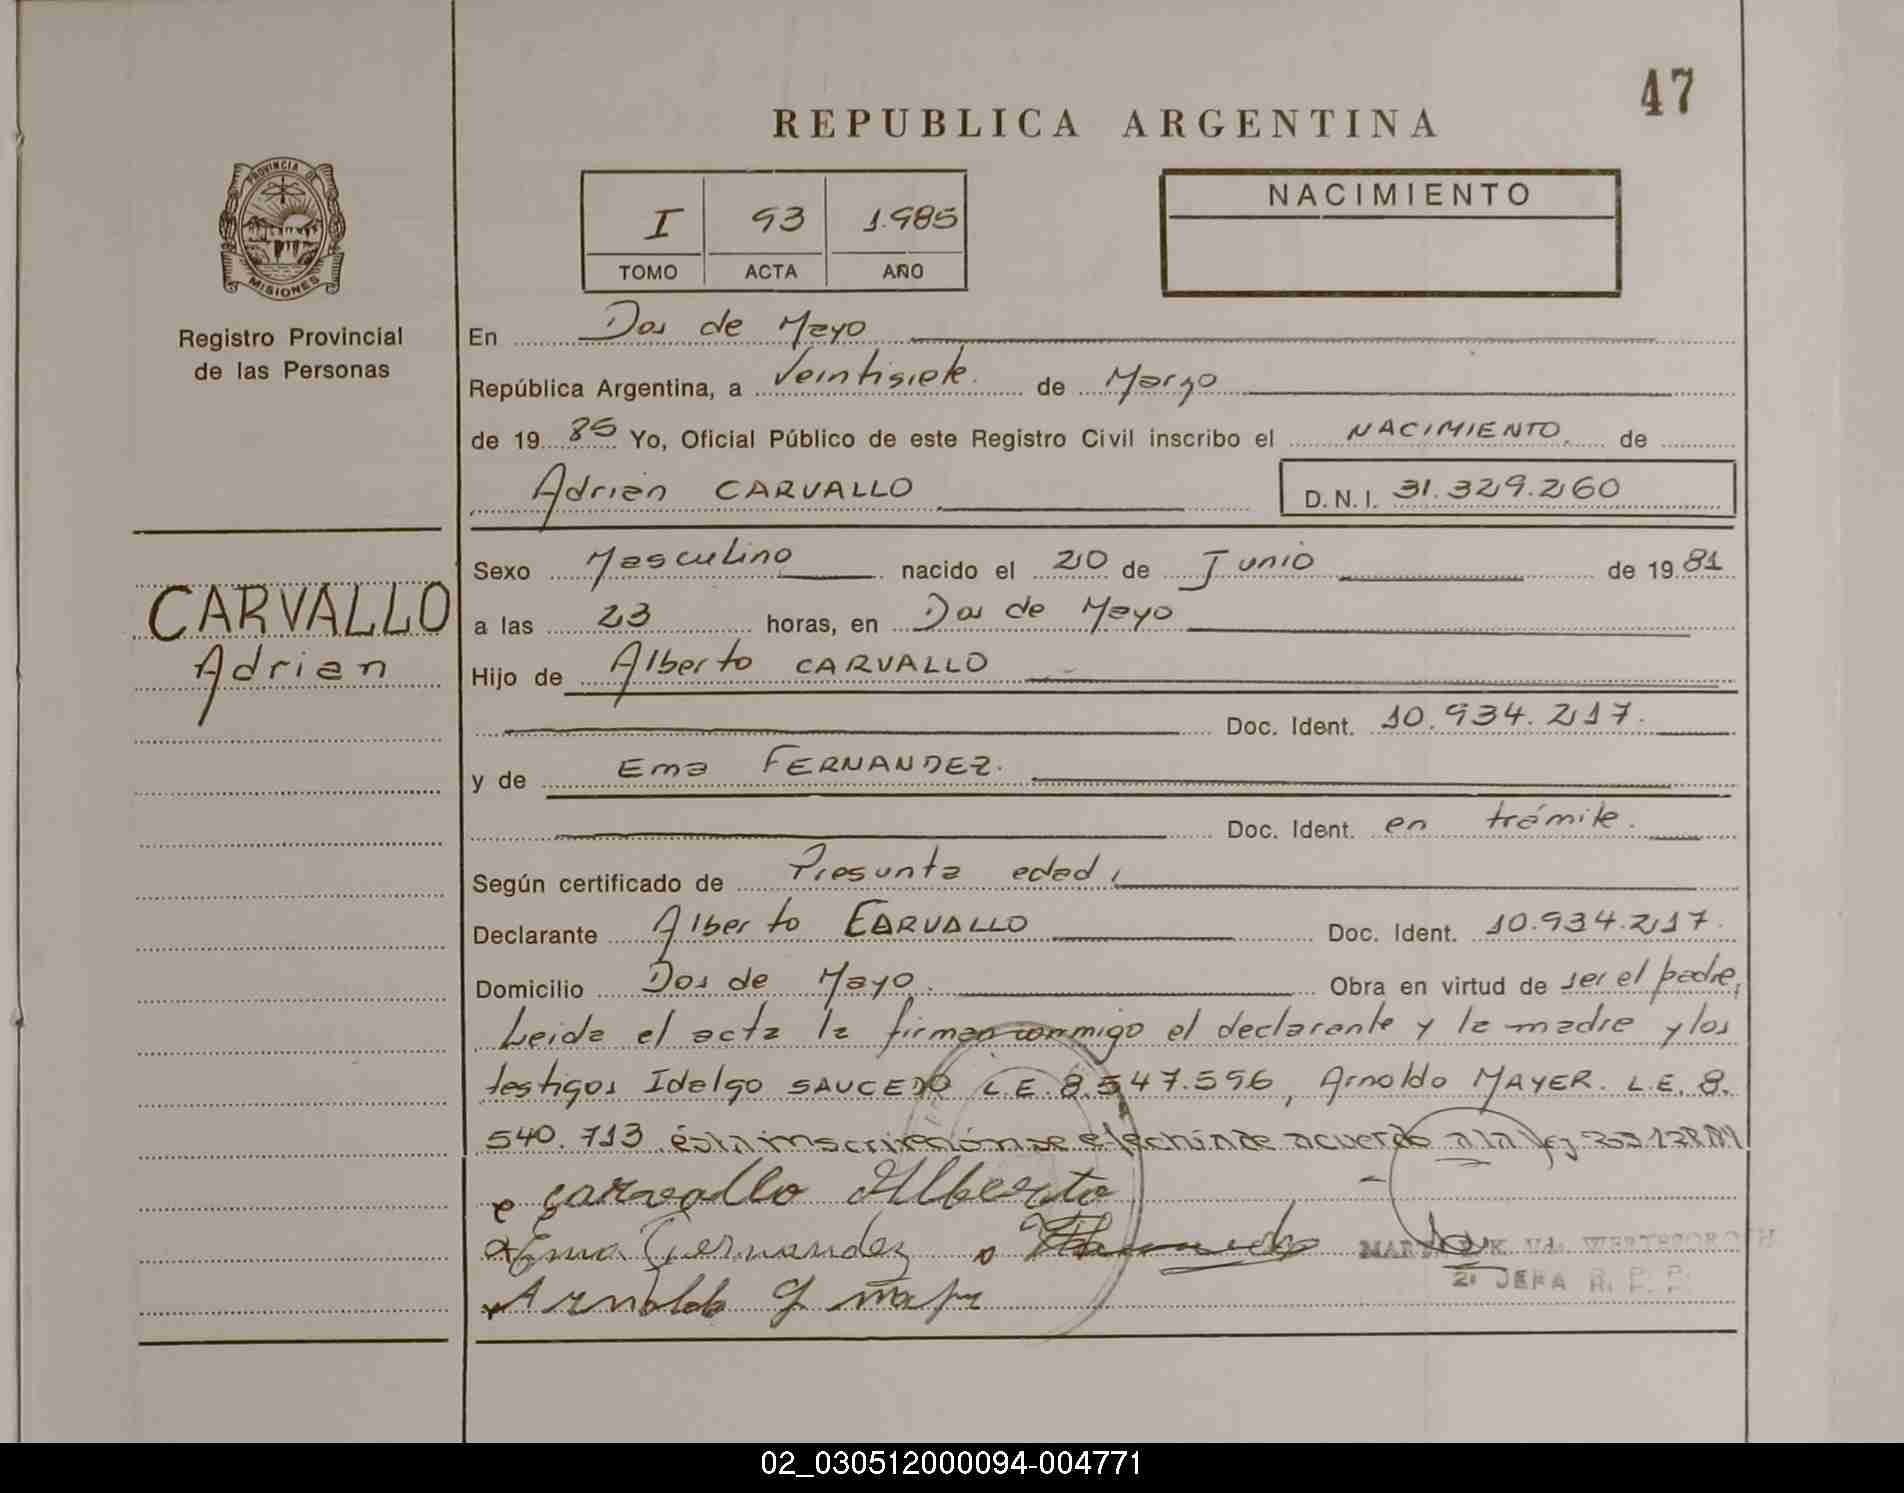 47
REPUBLICA ARGENTINA
PROVINCIA DE
MISIONES
Registro Provincial
de las Personas
I 93 1.985
TOMO ACTA AÑO
NACIMIENTO
En Dos de Mayo
República Argentina, a Veintisiete. de Marzo
de 19 85 Yo, Oficial Público de este Registro Civil inscribo el NACIMIENTO. de
Adrian CARVALLO D.N.I. 31.329.260
CARVALLO
Adrian
Sexo Masculino nacido el 20 de Junio de 19 81
a las 23 horas, en Dos de Mayo
Hijo de Alberto CARVALLO
Doc. Ident. 10.934.217.
y de Ema FERNANDEZ.
Doc. Ident. en trámite.
Según certificado de Presunta edad,
Declarante Alberto CARVALLO Doc. Ident. 10.934.217.
Domicilio Dos de Mayo. Obra en virtud de ser el padre,
Leida el acta la firman conmigo el declarante y la madre y los
testigos Idelgo SAUCEDO L.E. 8.547.596, Arnoldo MAYER. L.E. 8.
540.713. ésta inscripción se efectúa de acuerdo a la ley
Carvallo Alberto
Ema Fernandez
Arnoldo
2º JEFA R. P. P.
02_030512000094-004771